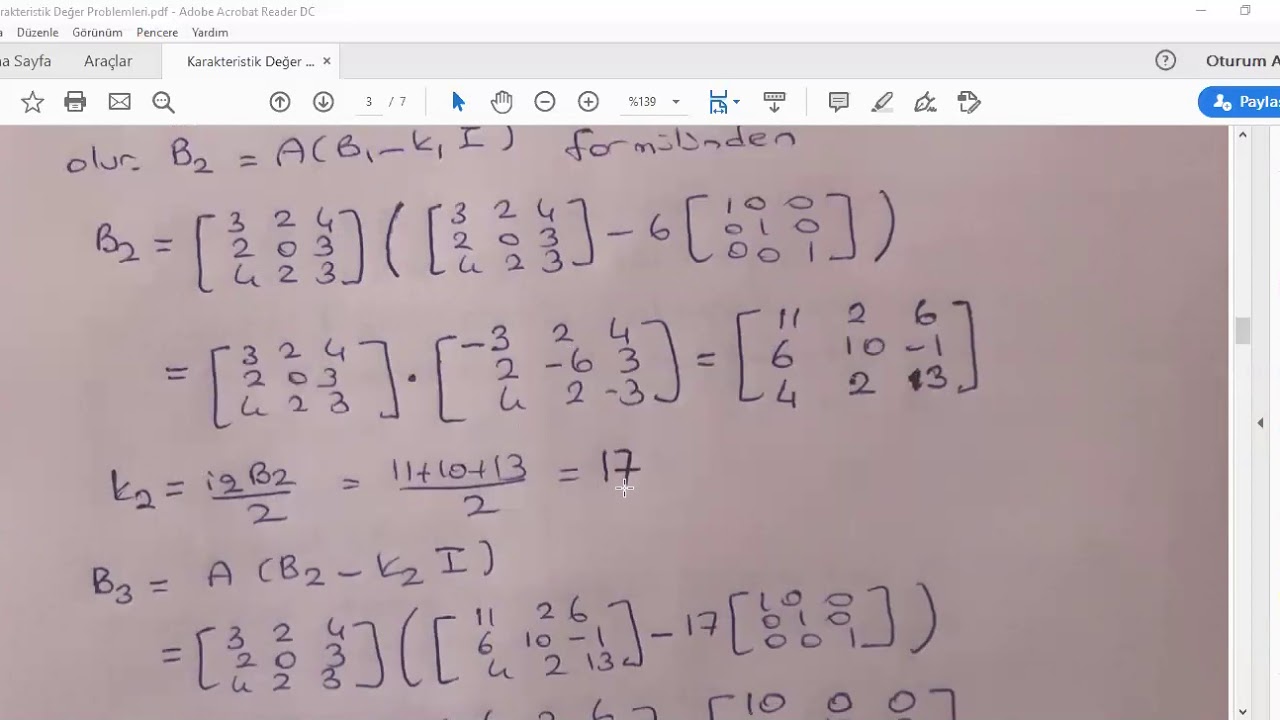 rakteristik Değer Problemleri.pdf - Adobe Acrobat Reader DC
a Düzenle Görünüm Pencere Yardım
na Sayfa Araçlar Karakteristik Değer ... × ? Oturum A
3 / 7 %139 Payla
olur. B₂ = A(B₁ - k₁ I) formülünden
B₂ = [3 2 4; 2 0 3; 4 2 3] ([3 2 4; 2 0 3; 4 2 3] - 6 [1 0 0; 0 1 0; 0 0 1])
= [3 2 4; 2 0 3; 4 2 3] · [-3 2 4; 2 -6 3; 4 2 -3] = [11 2 6; 6 10 -1; 4 2 13]
k₂ = iz B₂ / 2 = 11+10+13 / 2 = 17
B₃ = A (B₂ - k₂ I)
= [3 2 4; 2 0 3; 4 2 3] ([11 2 6; 6 10 -1; 4 2 13] - 17 [1 0 0; 0 1 0; 0 0 1])
2 6 [10 0 0